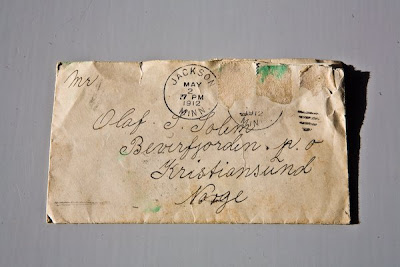 JACKSON
MAY
2
7 PM
1912
MINN.
1912
MINN.
Mr.
Olaf. T. Solem
Beverfjorden. p. o
Kristiansund
Norge